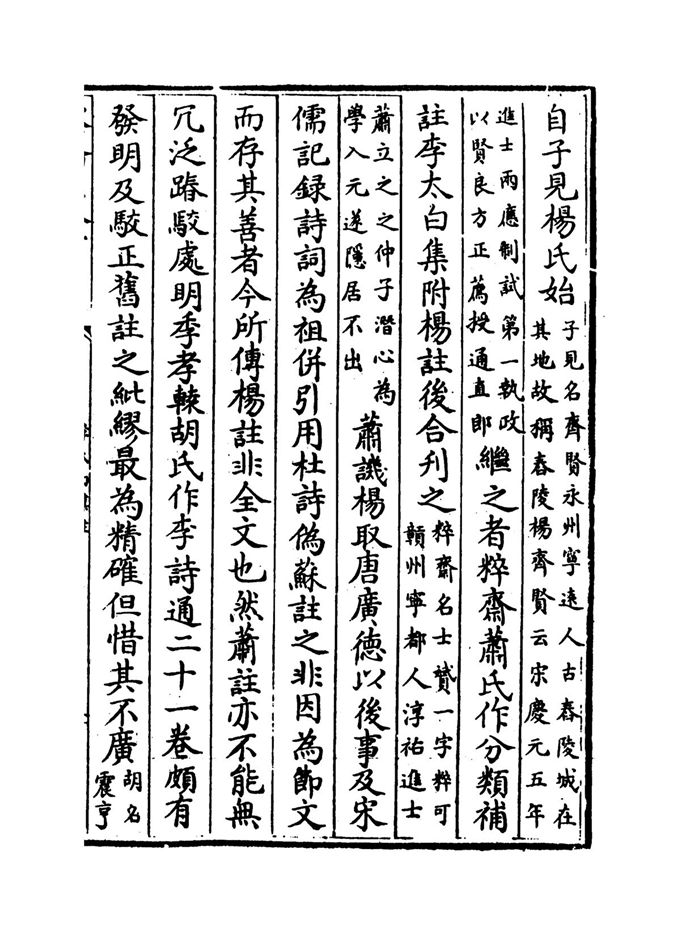 自子見楊氏始子見名齊賢永州寧逺人古舂陵城在其地故稱舂陵楊齊賢云宋慶元五年
進士兩應制試第一執政以賢良方正薦授通直郎繼之者粹齋蕭氏作分類補
註李太白集附楊註後合刋之粹齋名士贇一字粹可贛州寧都人淳祐進士
蕭立之之仲子潛心為學入元遂隱居不出蕭譏楊取唐廣德以後事及宋
儒記録詩詞為祖併引用杜詩偽蘇註之非因為節文
而存其善者今所傳楊註非全文也然蕭註亦不能無
冗泛踳駮處明季孝轅胡氏作李詩通二十一卷頗有
發明及駮正舊註之紕繆最為精確但惜其不廣胡名震亨